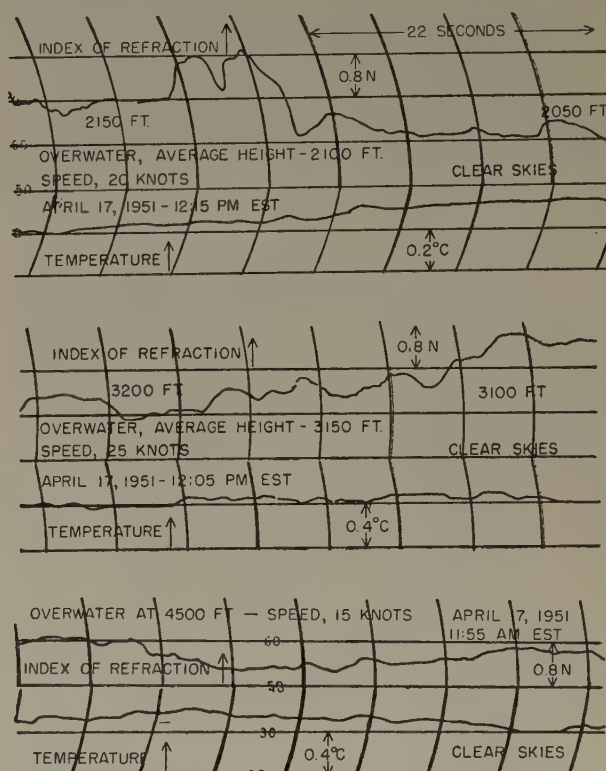 INDEX OF REFRACTION
22 SECONDS
0.8 N
2150 FT.
2050 FT
60
OVERWATER, AVERAGE HEIGHT - 2100 FT.
SPEED, 20 KNOTS
CLEAR SKIES
50
APRIL 17, 1951 - 12:15 PM EST
TEMPERATURE
0.2°C
INDEX OF REFRACTION
0.8 N
3200 FT
3100 FT
OVERWATER, AVERAGE HEIGHT - 3150 FT.
SPEED, 25 KNOTS
CLEAR SKIES
APRIL 17, 1951 - 12:05 PM EST
TEMPERATURE
0.4°C
OVERWATER AT 4500 FT — SPEED, 15 KNOTS
APRIL 7, 1951
60
11:55 AM EST
INDEX OF REFRACTION
0.8 N
50
30
TEMPERATURE
0.4°C
CLEAR SKIES